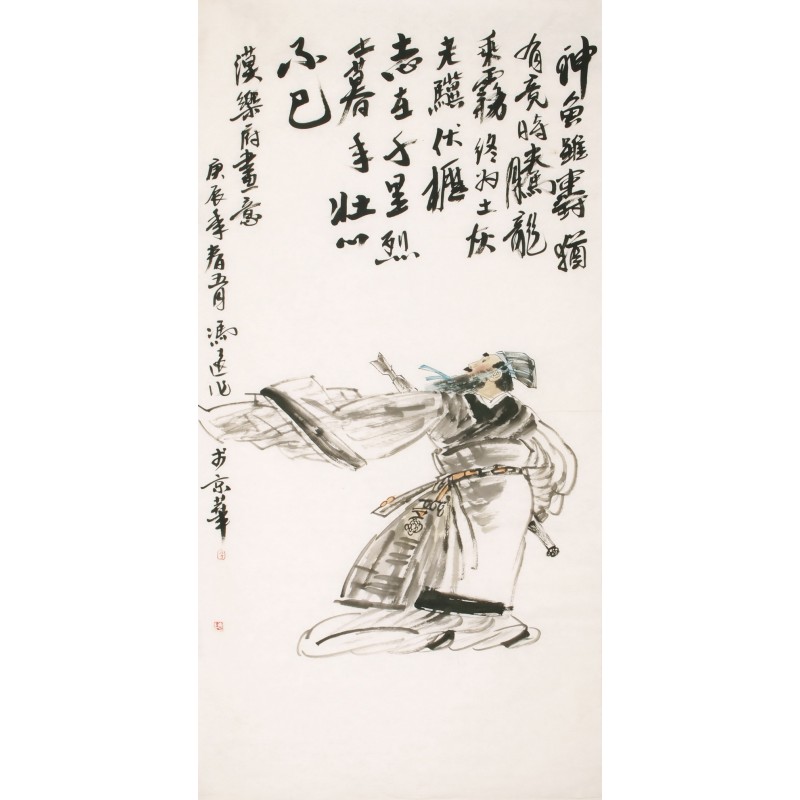 神龜雖壽猶
有竟時騰龍
乘霧終为土灰
老驥伏櫪
志在千里烈
士暮年壯心
不已
漢樂府畫意
庚辰年春五月馮遠作於京華